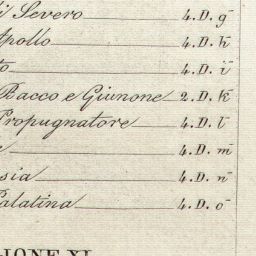 di Severo 4.D.g
Apollo 4.D.h
to 4.D.i
Bacco e Giunone 2.D.k
Propugnatore 4.D.l
e 4.D.m
sia 4.D.n
Palatina 4.D.o
GIONE XI